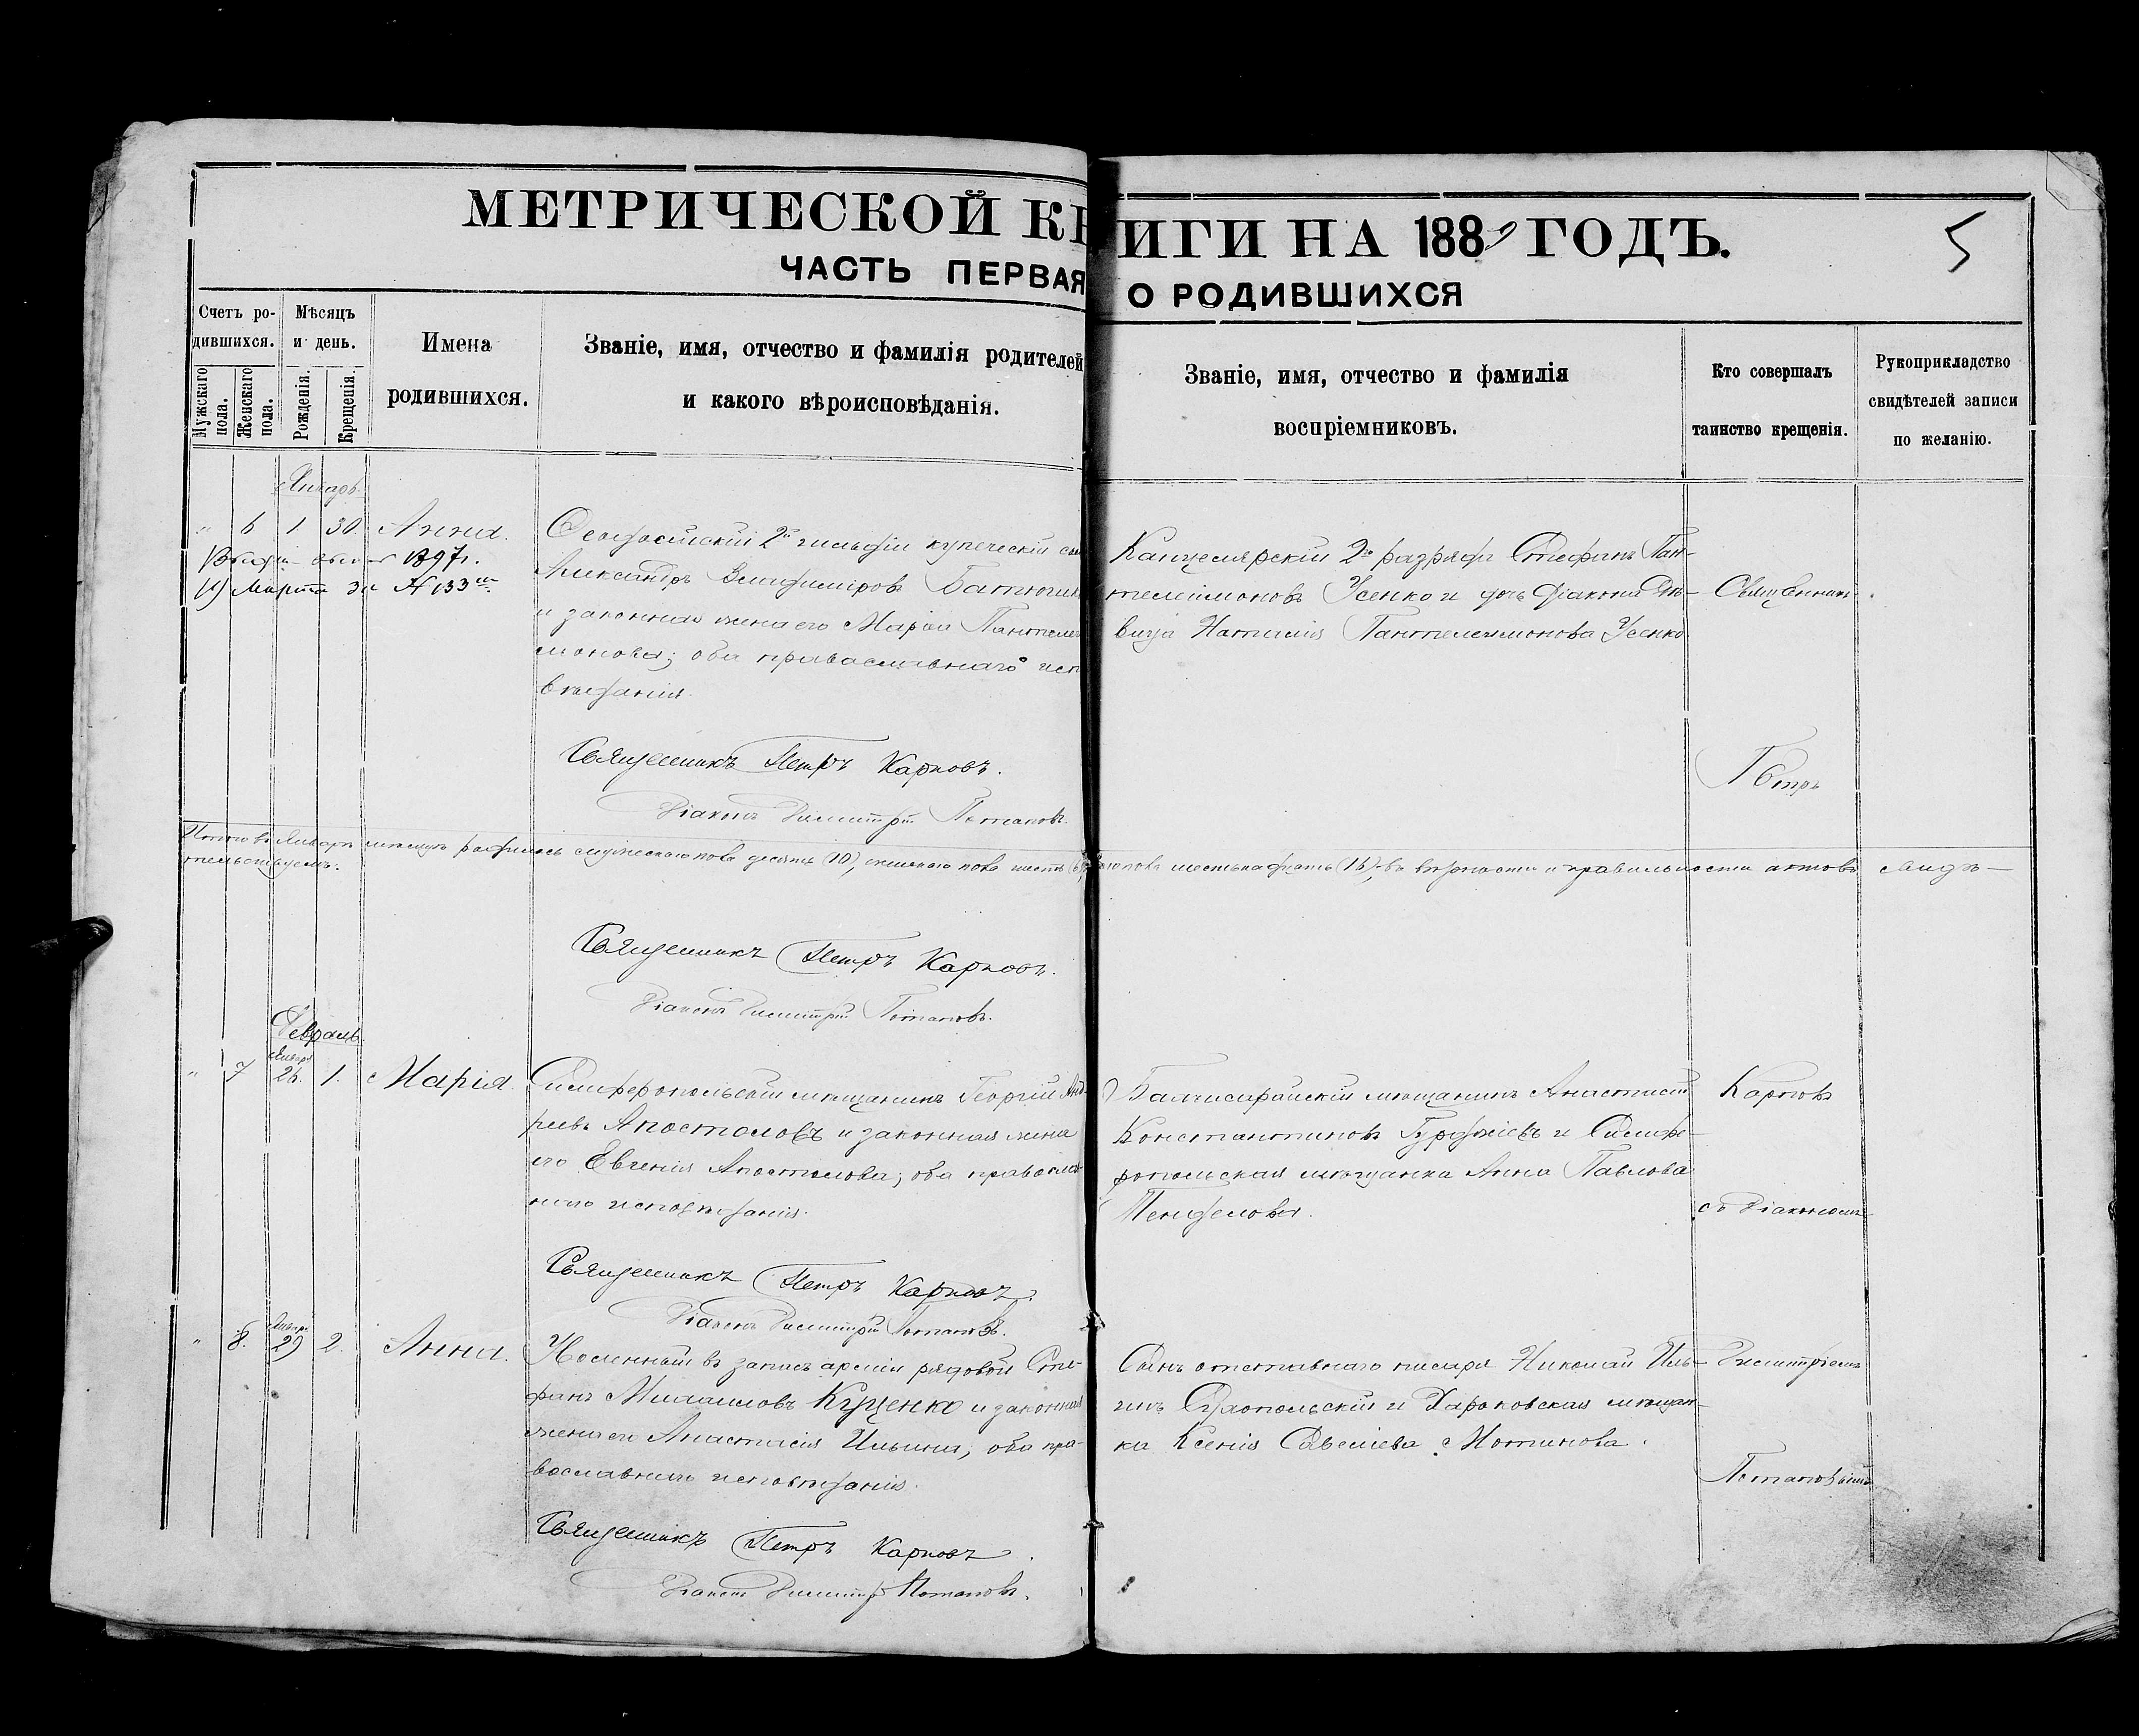 МЕТРИЧЕСКОЙ КНИГИ НА 1889 ГОДЪ.
5
ЧАСТЬ ПЕРВАЯ О РОДИВШИХСЯ
Счетъ ро-
дившихся.
Мужскаго пола.
Женскаго пола.
Мѣсяцъ
и день.
Рожденія.
Крещенія.
Имена
родившихся.
Званіе, имя, отчество и фамилія родителей
и какого вѣроисповѣданія.
Званіе, имя, отчество и фамилія
воспріемниковъ.
Кто совершалъ
таинство крещенія.
Рукоприкладство
свидѣтелей записи
по желанію.
Январь
" 6 1 30. Анна.
1897 г.
Марта за № 133
Ѳеодосійскій 2й гильдіи купеческій
Александръ Владиміровъ
и законная жена его Марія Пантелеи-
монова; оба православнаго испо-
вѣданія.
Священникъ Петръ Карповъ.
Діаконъ Димитрій Потаповъ.
Канцелярскій 2го разряда Стефанъ Пан-
телеимоновъ Усенко и дочь діакона
Наталія Пантелеимонова Усенко
Священникъ
Петръ
Итого въ Январѣ мѣсяцѣ родилось мужескаго пола десять (10), женскаго пола шесть (6), пола шестьнадцать (16), въ вѣрности и правильности актовъ свидѣ-
тельствуемъ:
Священникъ Петръ Карповъ.
Діаконъ Димитрій Потаповъ.
Февраль
Января
" 7 26. 1. Марія.
Симферопольскій мѣщанинъ Георгій Анд-
реевъ Апостоловъ и законная жена
его Евгенія Апостолова; оба православ-
наго исповѣданія.
Священникъ Петръ Карповъ.
Діаконъ Димитрій Потаповъ.
Бахчисарайскій мѣщанинъ Анастасій
Константиновъ Гурджіевъ и Симфе-
ропольская мѣщанка Анна Павлова
Карповъ
съ Діакономъ
Января
" 8. 29 2. Анна.
въ запасъ арміи рядовой Сте-
фанъ Михаиловъ Куценко и законная
жена его Анастасія Ильина, оба пра-
вославнаго исповѣданія.
Священникъ Петръ Карповъ.
Діаконъ Димитрій Потаповъ.
Сынъ отставнаго писаря Николай Иль-
инъ и Харьковская мѣщан-
ка Ксенія Савеліева Мотинова.
Димитріемъ
Потаповымъ